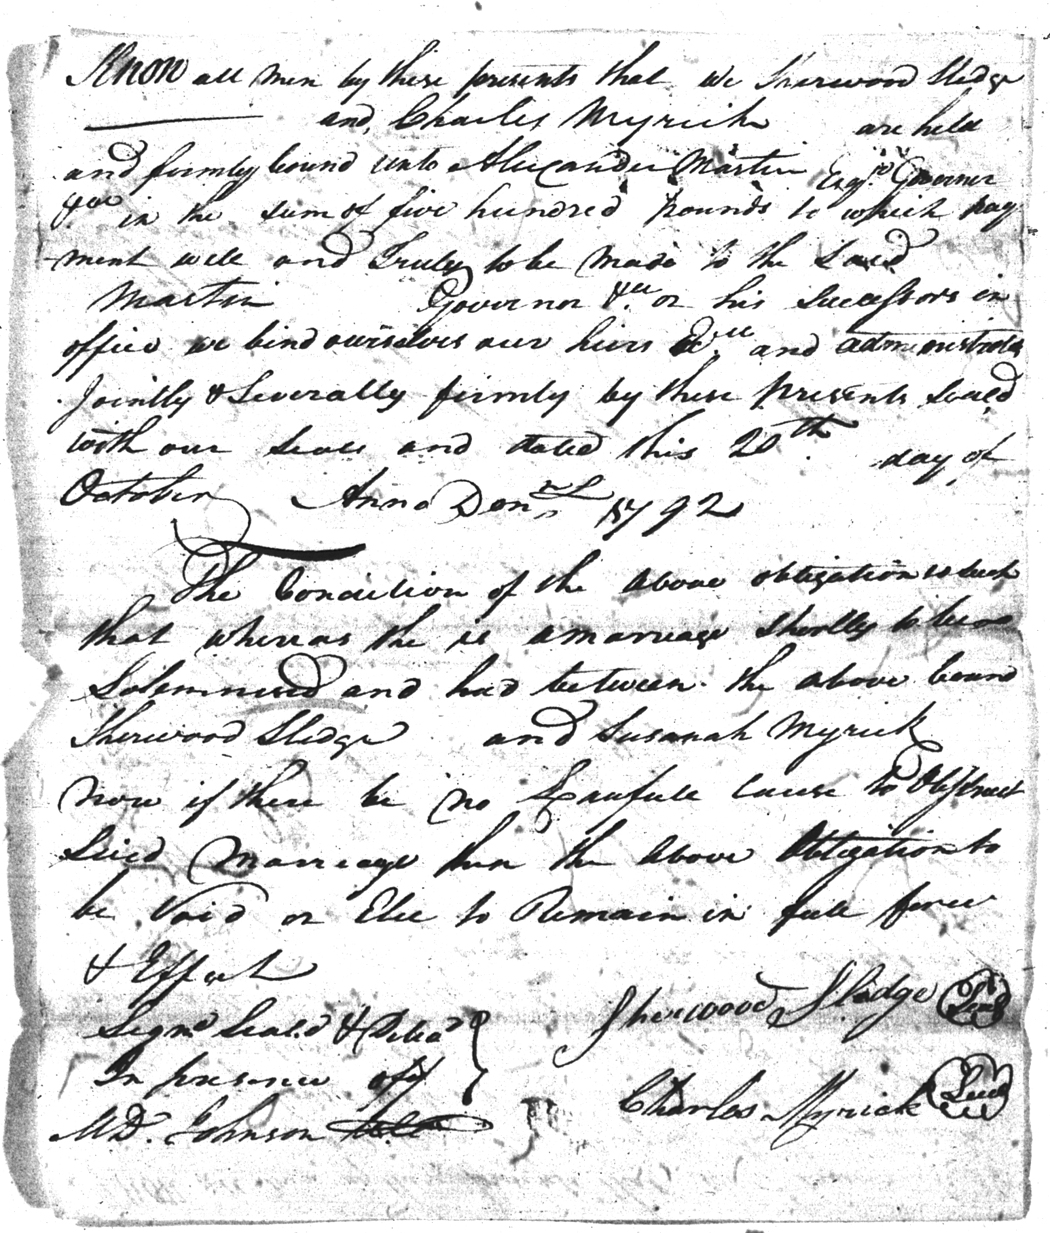 Know all men by these presents that we Sherwood Sledge
and Charles Myrick are held
and firmly bound unto Alexander Martin Esqr Governor
&c in the sum of five hundred pounds to which pay
ment well and Truly to be made to the said
Martin Governor &c or his Successors in
office we bind ourselves our heirs and administrators
Jointly & Severally firmly by these presents Seald
with our Seals and dated this 20th day of
October Anno Dom 1792
The Condition of the above obligation is such
that whereas the is a marriage shortly to be
Solemnised and had between the above bound
Sherwood Sledge and Susanah Myrick
now if there be no Lawfull cause to Obstruct
Said Marriage then the above Obligation to
be Void or Else to Remain in full force
& Effect
Signd Seald & Delivd Sherwood Sledge Seal
In presence off
Charles Myrick Seal
MD. Johnson